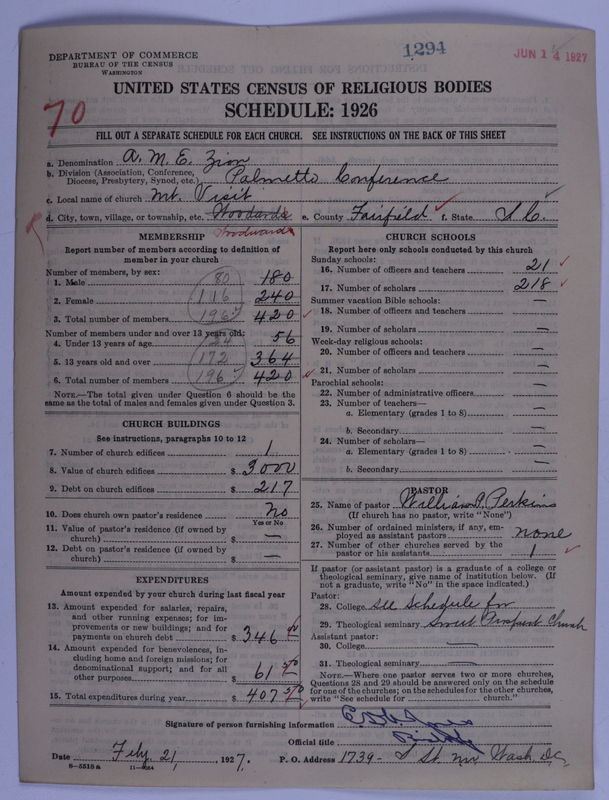 1294
JUN 14 1927
DEPARTMENT OF COMMERCE
BUREAU OF THE CENSUS
WASHINGTON
UNITED STATES CENSUS OF RELIGIOUS BODIES
SCHEDULE: 1926
70
FILL OUT A SEPARATE SCHEDULE FOR EACH CHURCH. SEE INSTRUCTIONS ON THE BACK OF THIS SHEET
a. Denomination A. M. E. Zion
b. Division (Association, Conference, Diocese, Presbytery, Synod, etc.) Palmetto Conference
c. Local name of church Mt. Visit
d. City, town, village, or township, etc. Woodards e. County Fairfield f. State S.C.
Woodwards
MEMBERSHIP
Report number of members according to definition of
member in your church
Number of members, by sex:
1. Male 80 180
2. Female 116 240
3. Total number of members 196 420
Number of members under and over 13 years old:
4. Under 13 years of age 24 56
5. 13 years old and over 172 364
6. Total number of members 196 420
NOTE.—The total given under Question 6 should be the
same as the total of males and females given under Question 3.
CHURCH BUILDINGS
See instructions, paragraphs 10 to 12
7. Number of church edifices 1
8. Value of church edifices $ 3000
9. Debt on church edifices $ 217
10. Does church own pastor's residence No
Yes or No
11. Value of pastor's residence (if owned by
church) $ —
12. Debt on pastor's residence (if owned by
church) $ —
EXPENDITURES
Amount expended by your church during last fiscal year
13. Amount expended for salaries, repairs,
and other running expenses; for im-
provements or new buildings; and for
payments on church debt $ 346 00
14. Amount expended for benevolences, in-
cluding home and foreign missions; for
denominational support; and for all
other purposes $ 61 50
15. Total expenditures during year $ 407 50
CHURCH SCHOOLS
Report here only schools conducted by this church
Sunday schools:
16. Number of officers and teachers 21
17. Number of scholars 218
Summer vacation Bible schools:
18. Number of officers and teachers —
19. Number of scholars —
Week-day religious schools:
20. Number of officers and teachers —
21. Number of scholars —
Parochial schools:
22. Number of administrative officers —
23. Number of teachers—
a. Elementary (grades 1 to 8) —
b. Secondary —
24. Number of scholars—
a. Elementary (grades 1 to 8) —
b. Secondary —
PASTOR
25. Name of pastor William A. Perkins
(If church has no pastor, write "None")
26. Number of ordained ministers, if any, em-
ployed as assistant pastors none
27. Number of other churches served by the
pastor or his assistants 1
If pastor (or assistant pastor) is a graduate of a college or
theological seminary, give name of institution below. (If
not a graduate, write "No" in the space indicated.)
Pastor:
28. College See Schedule for
29. Theological seminary Sweet Prospect Church
Assistant pastor:
30. College —
31. Theological seminary —
NOTE.—Where one pastor serves two or more churches,
Questions 28 and 29 should be answered only on the schedule
for one of the churches; on the schedules for the other churches,
write "See schedule for church."
Signature of person furnishing information
Official title
Date Feby 21, 1927. P. O. Address 1739- St. NW Wash. D.C.
8—5518a